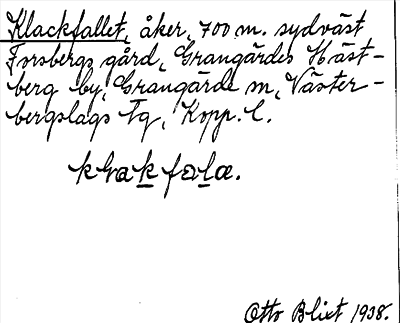 Klackfallet, åker, 700 m. sydväst
Forsbergs gård, Grangärdes Häst-
berg by, Grangärde sn, Väster-
bergslags Fg, Kopp. l.
Otto Blixt 1938.